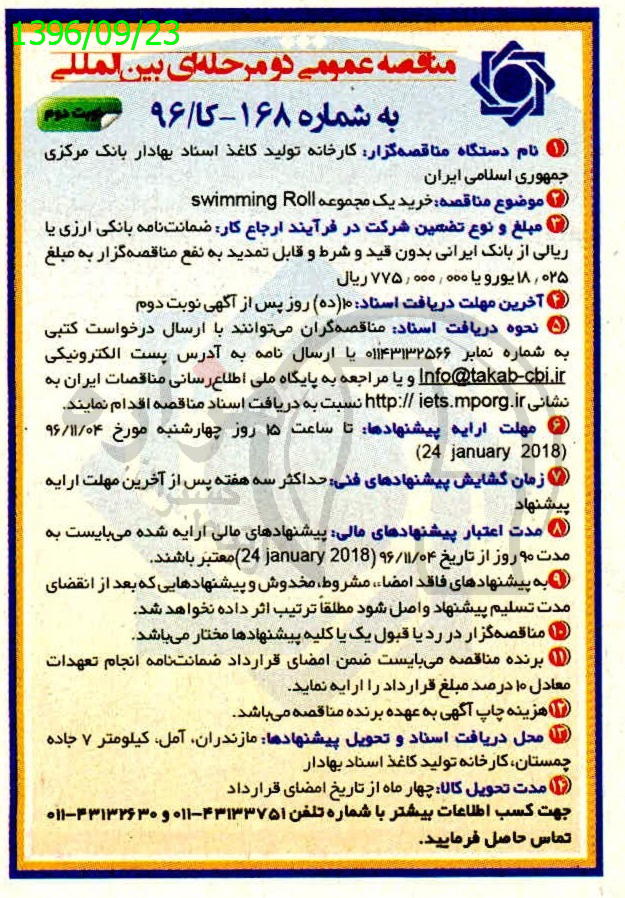 1396/09/23
مناقصه عمومی دو مرحله‌ای بین‌المللی
به شماره ۱۶۸-کا/۹۶
نوبت دوم
۱ نام دستگاه مناقصه‌گزار: کارخانه تولید کاغذ اسناد بهادار بانک مرکزی
جمهوری اسلامی ایران
۲ موضوع مناقصه: خرید یک مجموعه swimming Roll
۳ مبلغ و نوع تضمین شرکت در فرآیند ارجاع کار: ضمانت‌نامه بانکی ارزی یا
ریالی از بانک ایرانی بدون قید و شرط و قابل تمدید به نفع مناقصه‌گزار به مبلغ
۱۸,۰۲۵ یورو یا ۷۷۵,۰۰۰,۰۰۰ ریال
۴ آخرین مهلت دریافت اسناد: ۱۰(ده) روز پس از آگهی نوبت دوم
۵ نحوه دریافت اسناد: مناقصه‌گران می‌توانند با ارسال درخواست کتبی
به شماره نمابر ۰۱۱۴۳۱۳۲۵۶۶ یا ارسال نامه به آدرس پست الکترونیکی
Info@takab-cbi.ir و یا مراجعه به پایگاه ملی اطلاع‌رسانی مناقصات ایران به
نشانی http:// iets.mporg.ir نسبت به دریافت اسناد مناقصه اقدام نمایند.
۶ مهلت ارایه پیشنهادها: تا ساعت ۱۵ روز چهارشنبه مورخ ۹۶/۱۱/۰۴
(24 january 2018)
۷ زمان گشایش پیشنهادهای فنی: حداکثر سه هفته پس از آخرین مهلت ارایه
پیشنهاد
۸ مدت اعتبار پیشنهادهای مالی: پیشنهادهای مالی ارایه شده می‌بایست به
مدت ۹۰ روز از تاریخ ۹۶/۱۱/۰۴ (24 january 2018) معتبر باشند.
۹ به پیشنهادهای فاقد امضاء، مشروط، مخدوش و پیشنهادهایی که بعد از انقضای
مدت تسلیم پیشنهاد واصل شود مطلقاً ترتیب اثر داده نخواهد شد.
۱۰ مناقصه‌گزار در رد یا قبول یک یا کلیه پیشنهادها مختار می‌باشد.
۱۱ برنده مناقصه می‌بایست ضمن امضای قرارداد ضمانت‌نامه انجام تعهدات
معادل ۱۰ درصد مبلغ قرارداد را ارایه نماید.
۱۲ هزینه چاپ آگهی به عهده برنده مناقصه می‌باشد.
۱۳ محل دریافت اسناد و تحویل پیشنهادها: مازندران، آمل، کیلومتر ۷ جاده
چمستان، کارخانه تولید کاغذ اسناد بهادار
۱۴ مدت تحویل کالا: چهار ماه از تاریخ امضای قرارداد
جهت کسب اطلاعات بیشتر با شماره تلفن ۴۳۱۳۳۷۵۱-۰۱۱ و ۴۳۱۳۲۶۳۰-۰۱۱
تماس حاصل فرمایید.